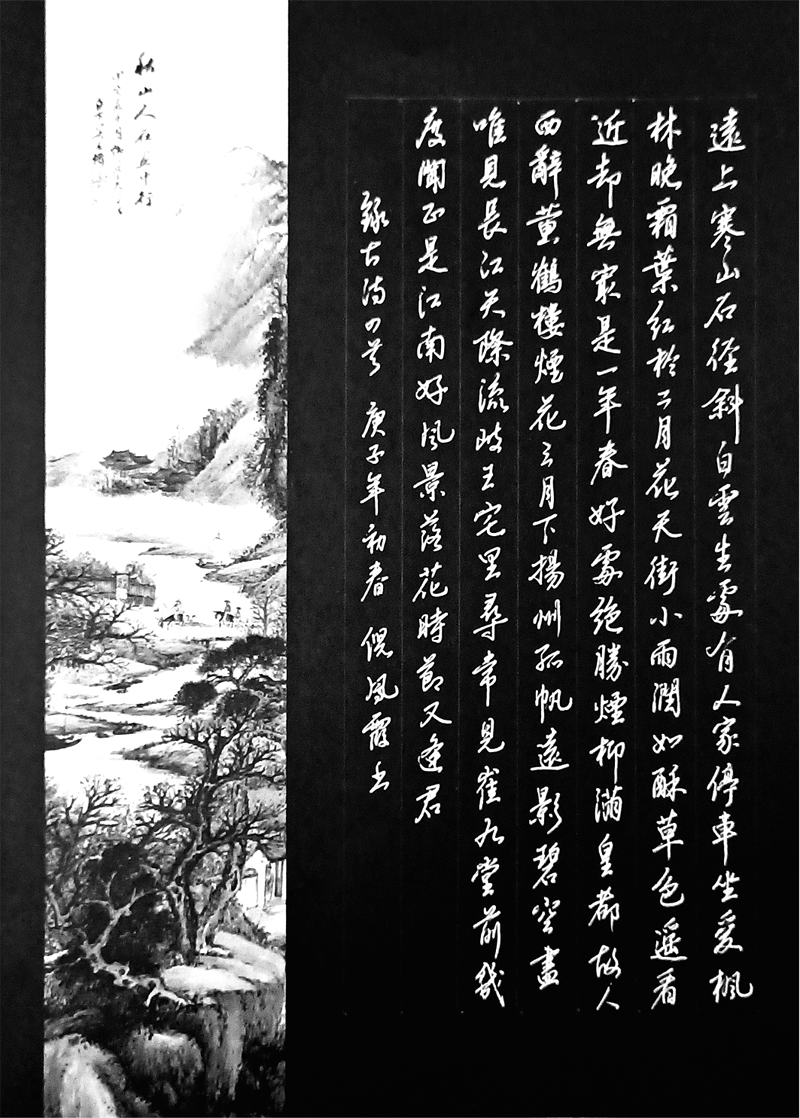 遠上寒山石徑斜白雲生處有人家停車坐愛楓
林晚霜葉紅於二月花天街小雨潤如酥草色遥看
近却無最是一年春好處絶勝煙柳滿皇都故人
西辭黄鶴樓煙花三月下揚州孤帆遠影碧空盡
唯見長江天際流岐王宅里尋常見崔九堂前幾
度聞正是江南好風景落花時節又逢君
錄古詩四首 庚子年初春 倪風霞書
秋山人在畫中行